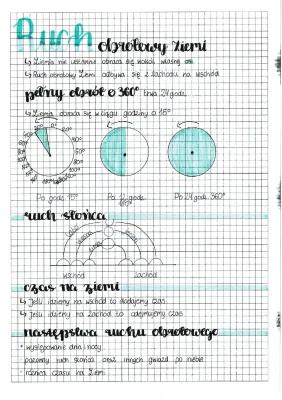 Ruch obrotowy Ziemi
↳ Ziemia nie ustannie obraca się wokół własnej osi
↳ Ruch obrotowy Ziemi odbywa się z zachodu na wschód
pełny obrót o 360° trwa 24 godz.
↳ Ziemia obraca się w ciągu godziny o 15°
Po godz. 15°
Po 12 godz. 180°
Po 24 godz. 360°
ruch słońca
lato
wiosna
jesień
zima
wschód
zachód
czas na ziemi
↳ Jeśli idziemy na wschód to dodajemy czas
↳ Jeśli idziemy na zachód to odejmujemy czas
następstwa ruchu obrotowego
* występowanie dnia i nocy
pozorny ruch słońca oraz innych gwiazd po niebie
* różnica czasu na Ziemi